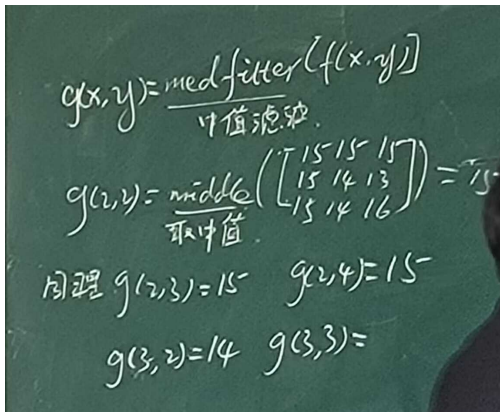 g(x,y)=medfitter[f(x,y)]
中值滤波.
g(2,2)=middle([15 15 15
15 14 13
15 14 16])=15
取中值.
同理 g(2,3)=15 g(2,4)=15
g(3,2)=14 g(3,3)=